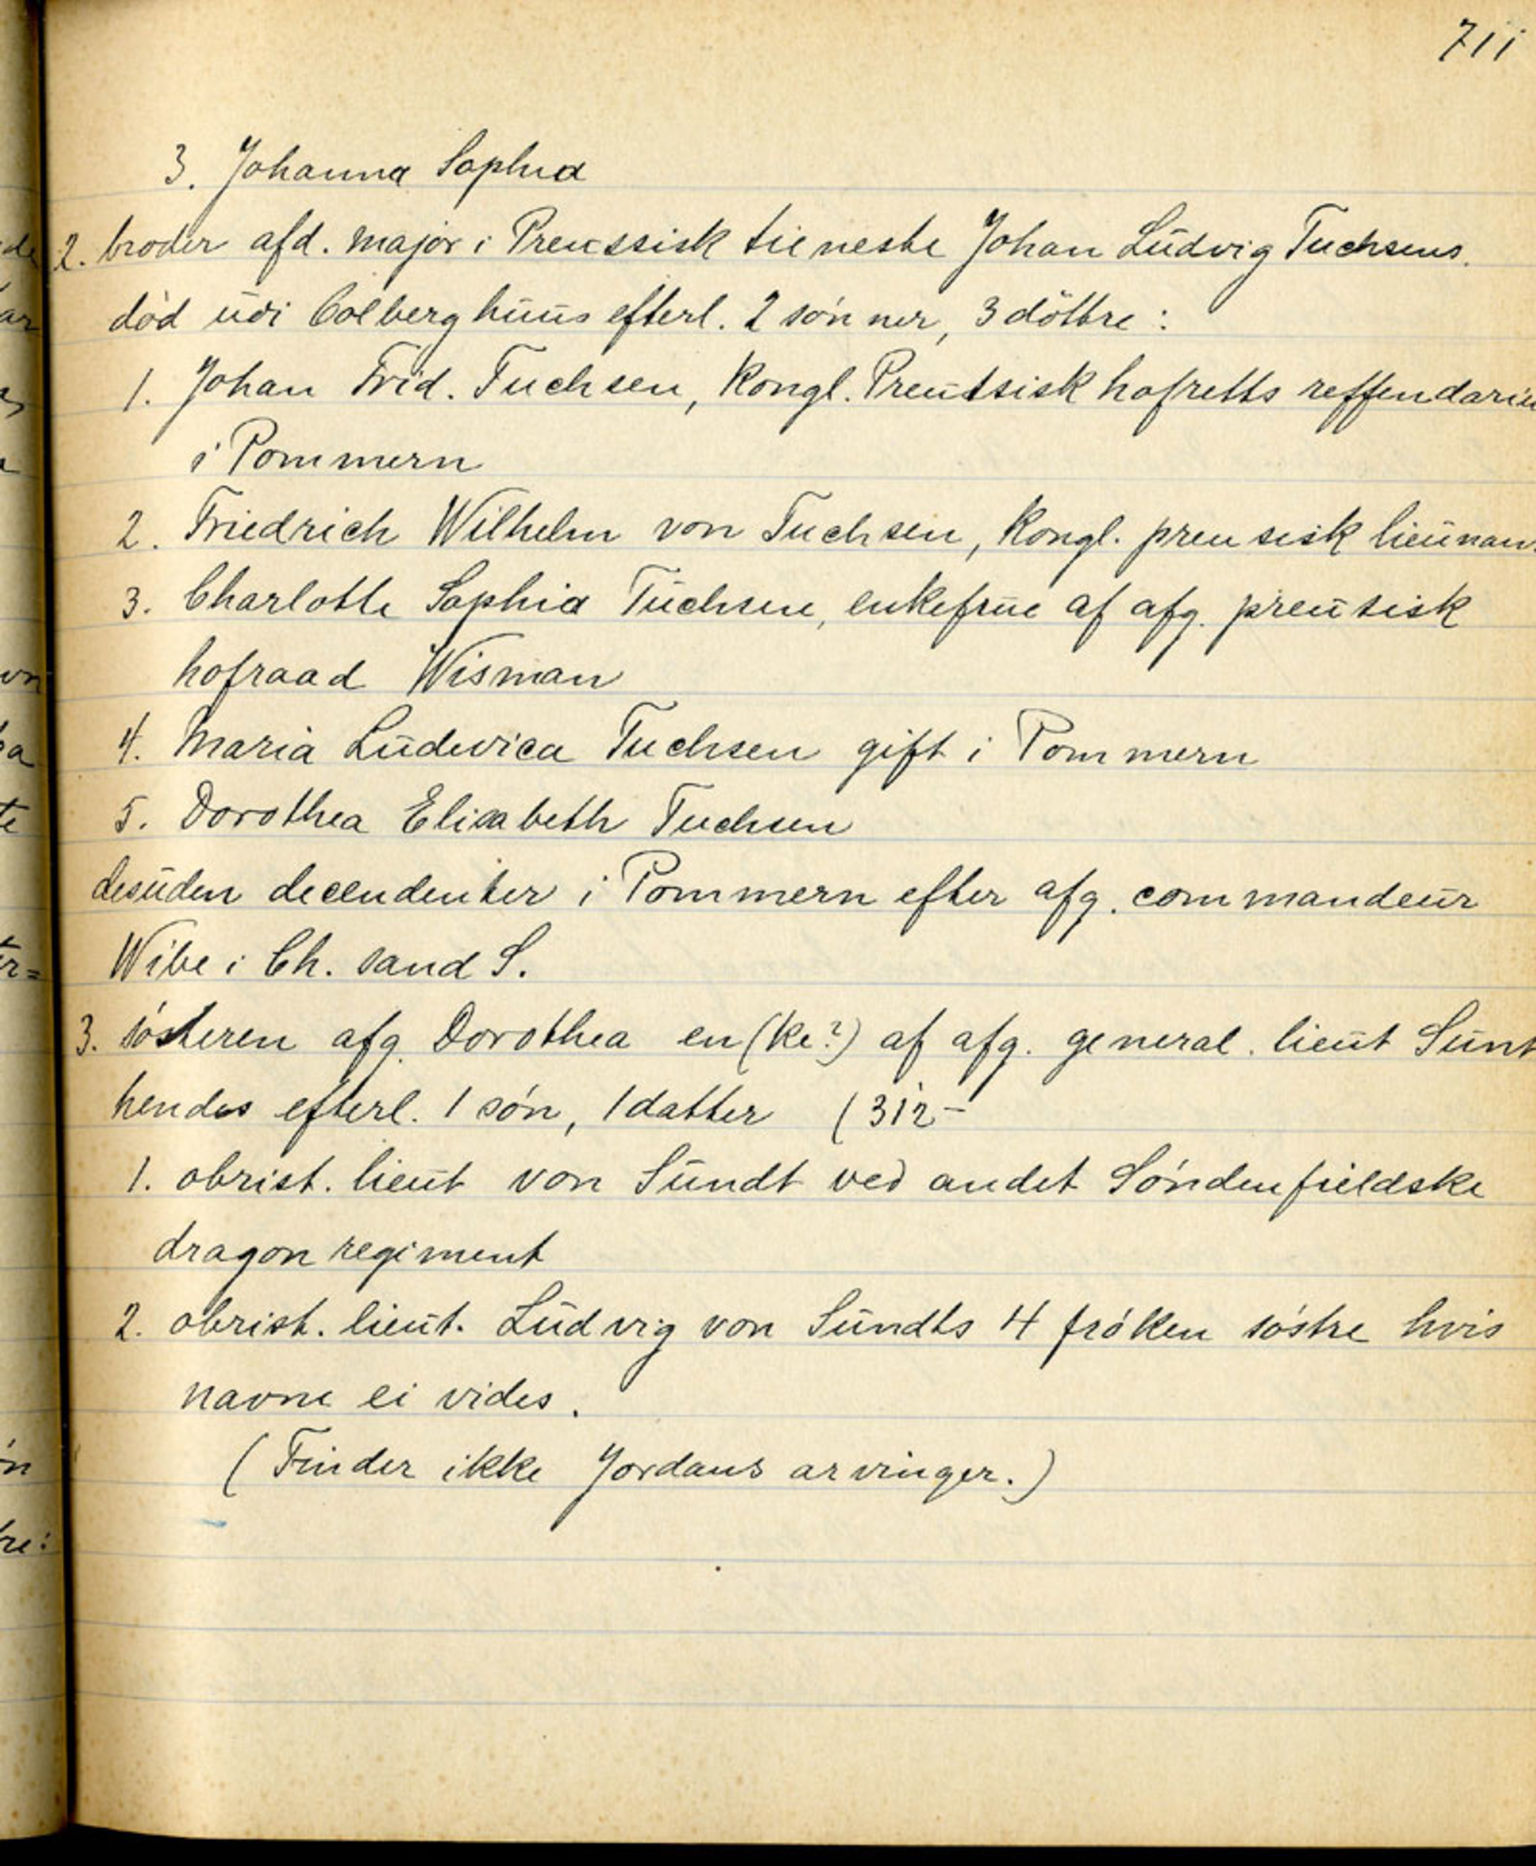 711
3. Johanna Sophia
2. broder afd. major i Preussisk tieneste Johan Ludvig Tuchsens.
død udi Colberg huus efterl. 2 sønner, 3 döttre:
1. Johan Frid. Tuchsen, Kongl. Preutsisk hofretts reffendariu
i Pommern
2. Friedrich Wilhelm von Tuchsen, Kongl. preusisk lieunan
3. Charlotte Sophia Tuchsen, enkefrue af afg. preutisk
hofraad Wisman
4. Maria Ludevica Tuchsen gift i Pommern
5. Dorothea Elisabeth Tuchsen
desuden decendenter i Pommern efter afg. commandeur
Wibe i Ch. sand S.
3. søsteren afg. Dorothea en(ke?) af afg. general. lieut Sunt
hendes efterl. 1 søn, 1 datter (312-
1. obrist. lieut von Sundt ved andet Søndenfieldske
dragon regiment
2. obrist. lieut. Ludvig von Sundts 4 frøken søstre hvis
navne ei vides.
(Finder ikke Jordans arvinger.)